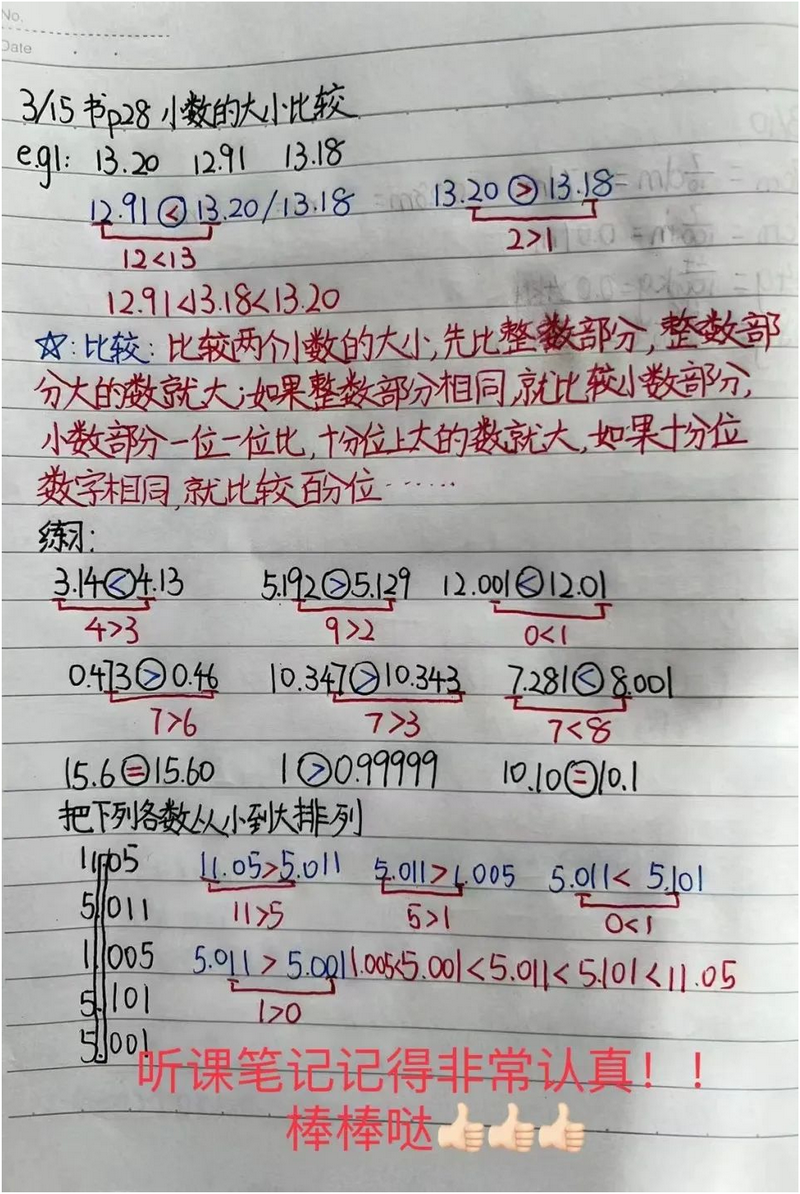 No.
Date
3/15 书p28 小数的大小比较
e.g1: 13.20 12.91 13.18
12.91 < 13.20/13.18 13.20 > 13.18
12<13 2>1
12.91<13.18<13.20
☆:比较:比较两个小数的大小,先比整数部分,整数部
分大的数就大;如果整数部分相同,就比较小数部分,
小数部分一位一位比,十分位上大的数就大,如果十分位
数字相同,就比较百分位……
练习:
3.14<4.13 5.192>5.129 12.001<12.01
4>3 9>2 0<1
0.473>0.46 10.347>10.343 7.281<8.001
7>6 7>3 7<8
15.6=15.60 1>0.99999 10.10=10.1
把下列各数从小到大排列
11.05 11.05>5.011 5.011>1.005 5.011< 5.101
5.011 11>5 5>1 0<1
1.005 5.011 > 5.001 1.005<5.001<5.011<5.101<11.05
5.101 1>0
5.001
听课笔记记得非常认真！！
棒棒哒👍🏻👍🏻👍🏻